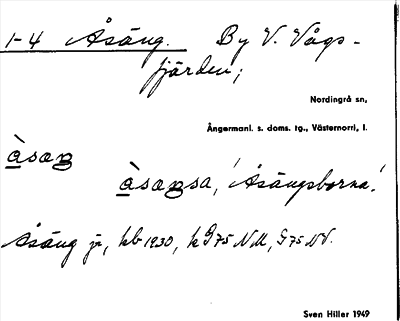 1-4 Åsäng. By V. Vågs-
fjärden;
Nordingrå sn,
Ångermanl. s. doms. tg., Västernorrl, l.
àsaŋ
àsaŋsa, 'Åsängsborna'.
Åsäng jr, kb 1930, k G75 NM, G75 NV.
Sven Hiller 1949